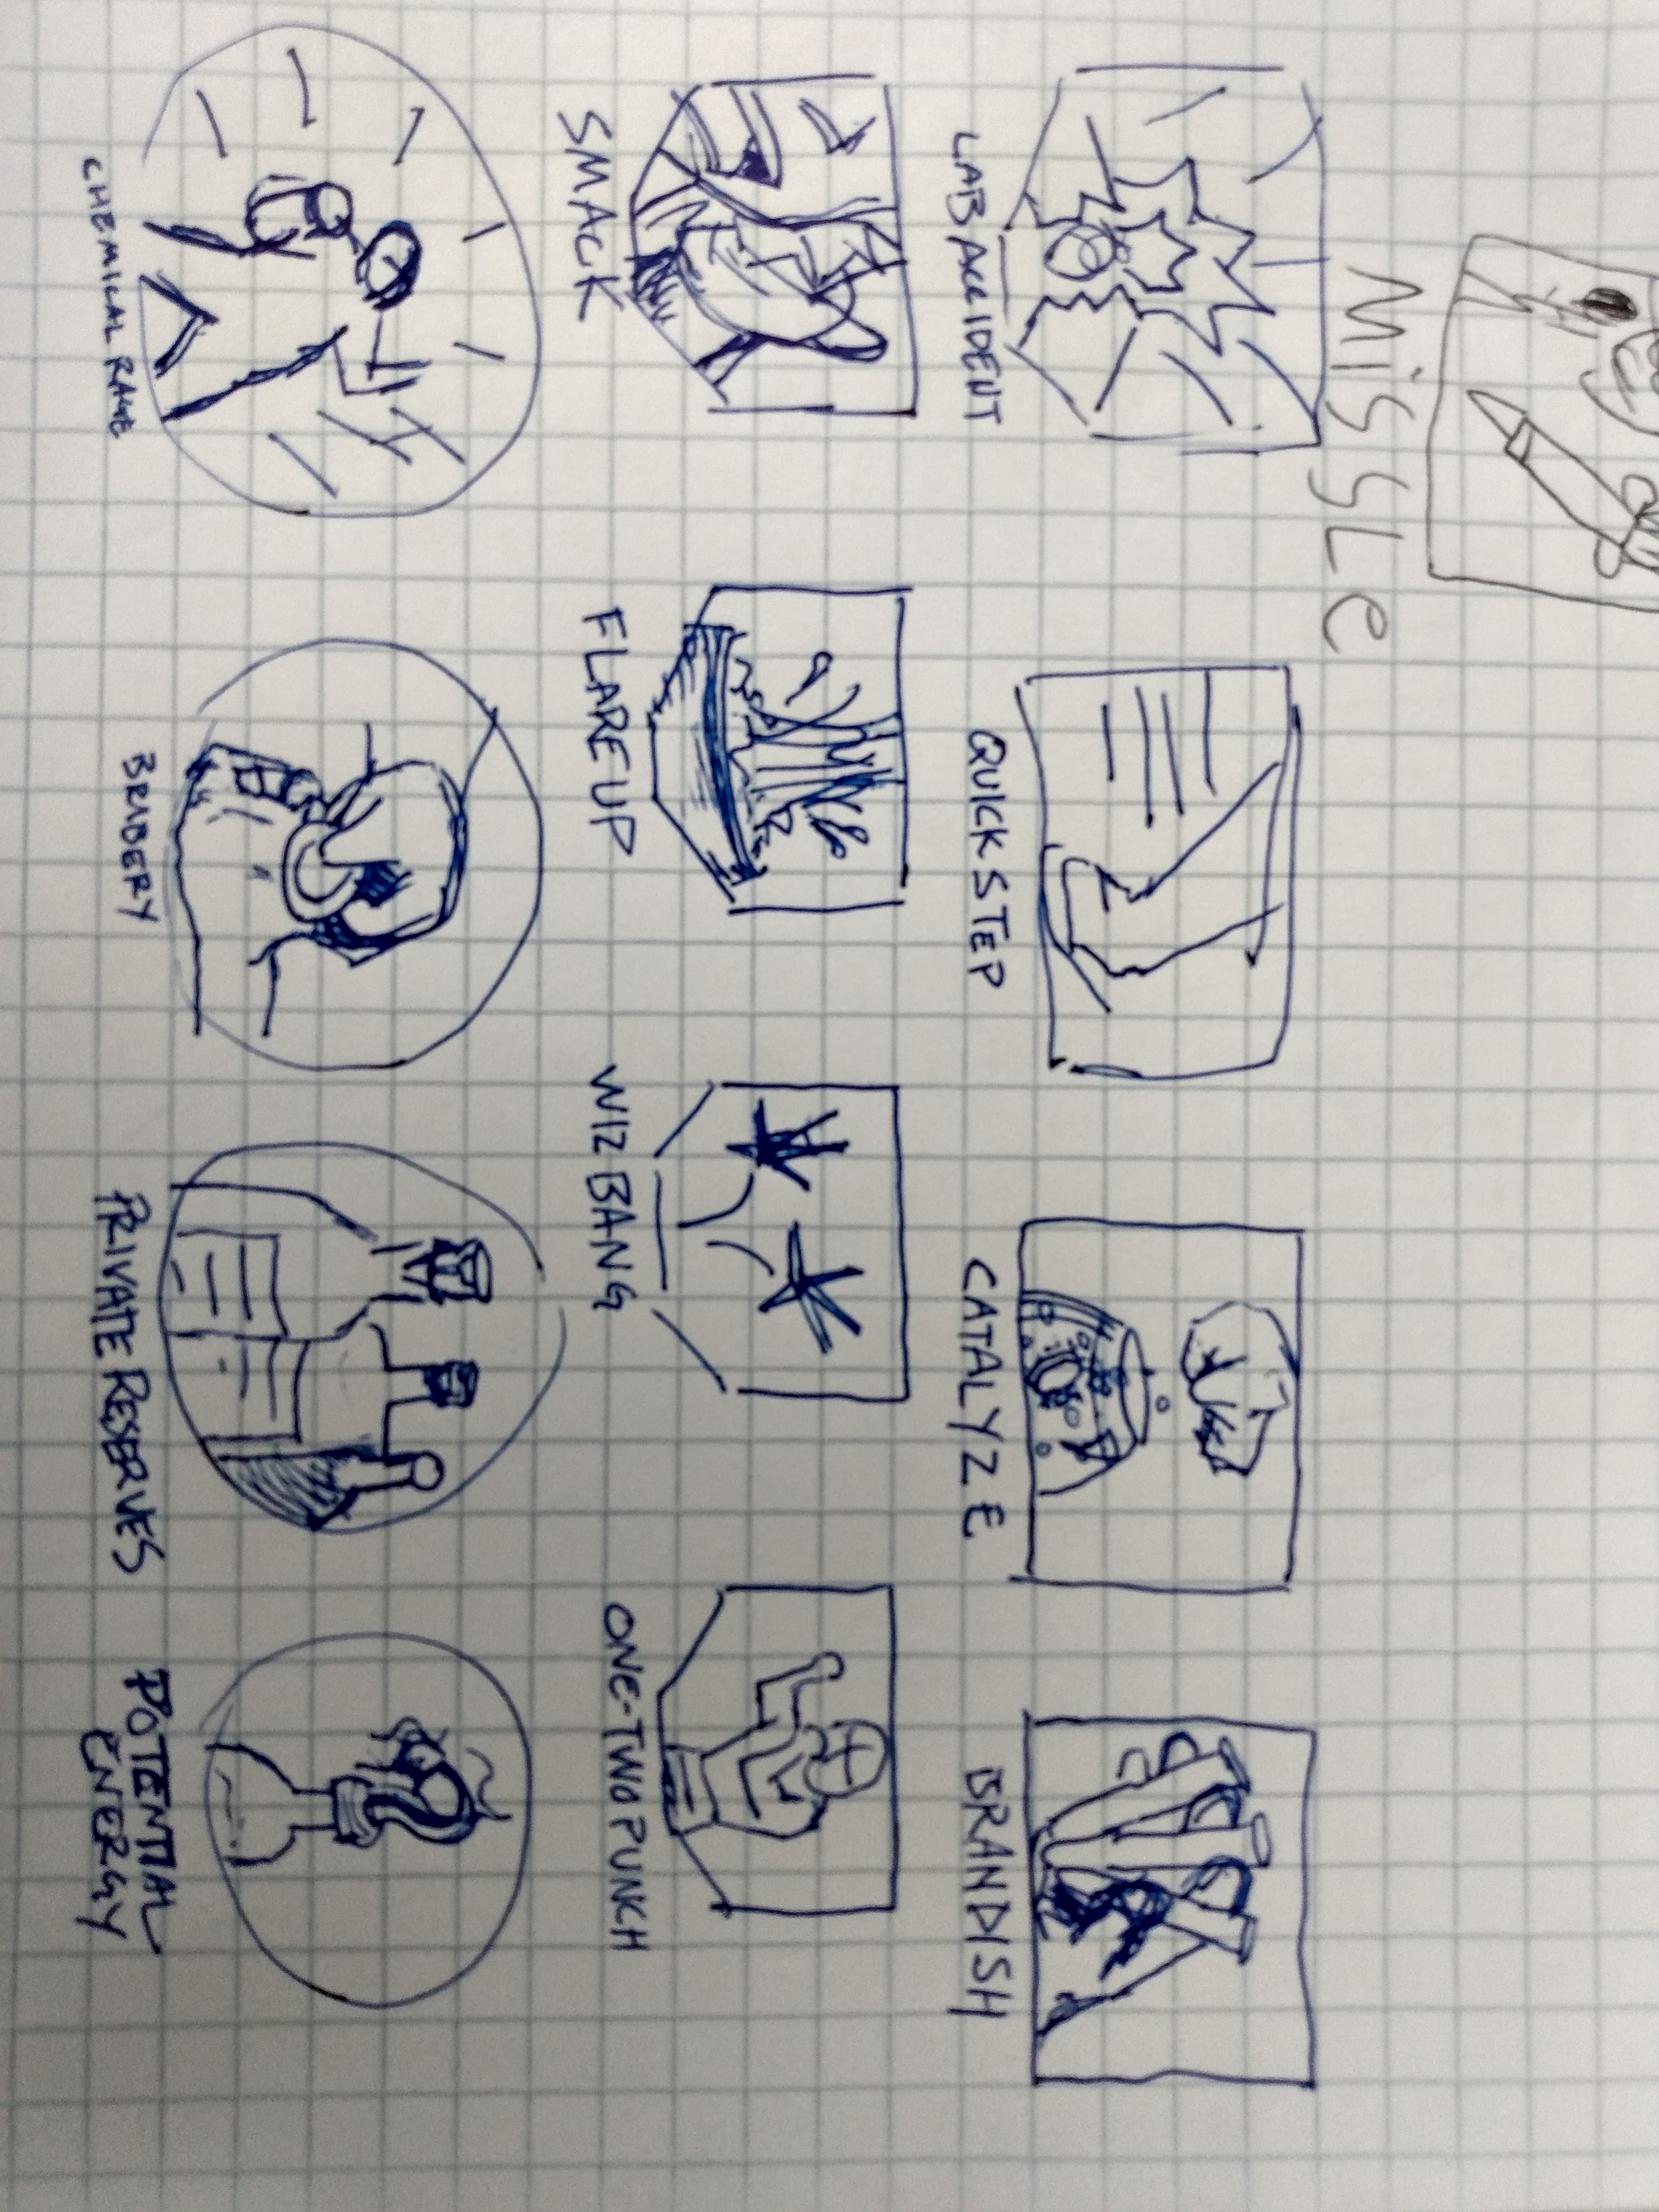 MiSSLe
LAB ACCIDENT
QUICK STEP
CATALYZE
BRANDISH
SMACK
FLARE UP
WIZ BANG
ONE-TWO PUNCH
CHEMICAL RAGE
BRIBERY
PRIVATE RESERVES
POTENTIAL
ENERGY